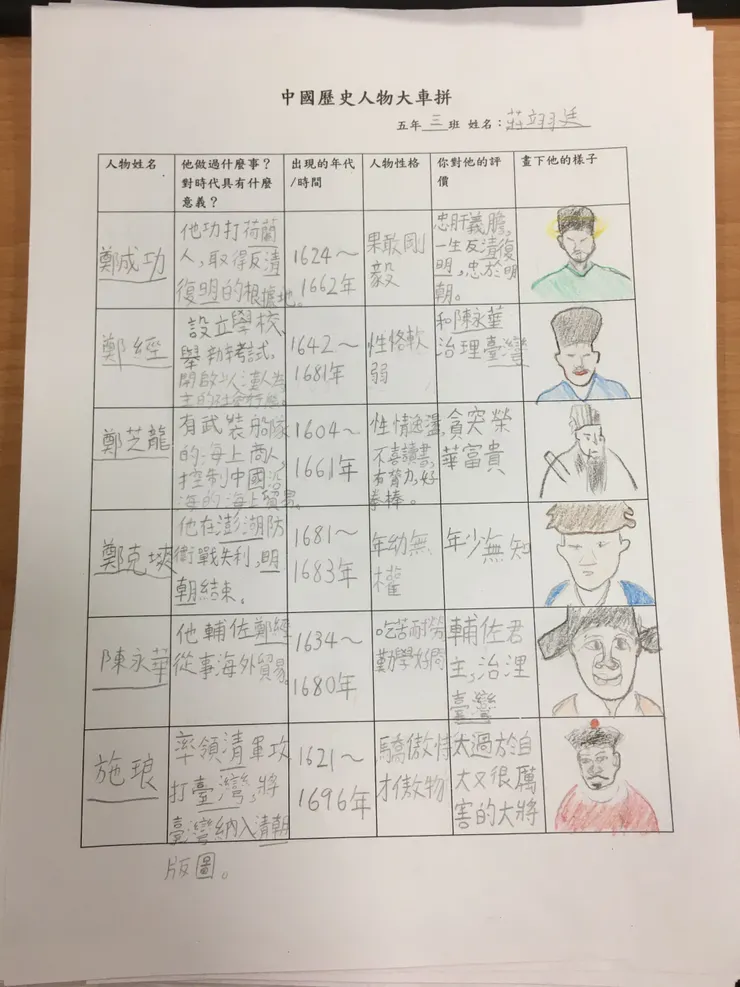 中國歷史人物大車拼
五年三班 姓名：莊翊廷
人物姓名
他做過什麼事？
對時代具有什麼
意義？
出現的年代
/時間
人物性格
你對他的評
價
畫下他的樣子
鄭成功
他功打荷蘭
人，取得反清
復明的根據地。
1624～
1662年
果敢剛
毅
忠肝義膽，
一生反清復
明，忠於明
朝。
鄭經
設立學校、
舉辦考試，
開啟以漢人為
主的社會
1642～
1681年
性格軟
弱
和陳永華
治理臺灣
鄭芝龍
有武裝船隊
的海上商人，
控制中國沿
海的海上貿易。
1604～
1661年
性情逸蕩，
不喜讀書，
有膂力，好
拳棒。
貪突榮
華富貴
鄭克塽
他在澎湖防
衛戰失利，明
朝結束。
1681～
1683年
年幼無
權
年少無知
陳永華
他輔佐鄭經
從事海外貿易。
1634～
1680年
吃苦耐勞
勤學好問
輔佐君
主，治理
臺灣
施琅
率領清軍攻
打臺灣，將
臺灣納入清朝
版圖。
1621～
1696年
驕傲恃
才傲物
太過於自
大又很厲
害的大將